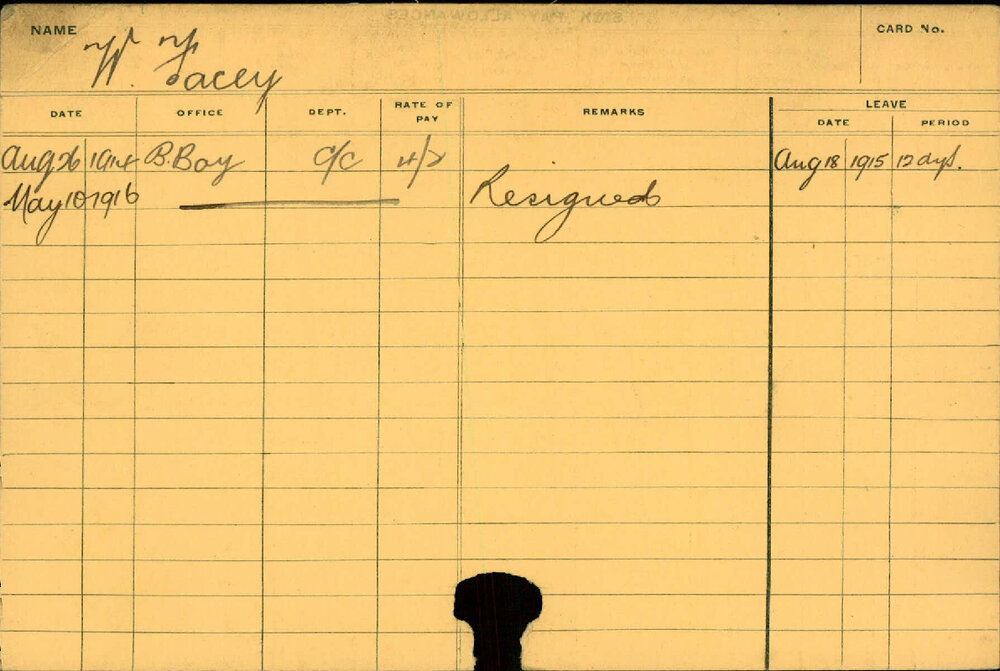 NAME W. Facey CARD No.
DATE OFFICE DEPT. RATE OF PAY REMARKS LEAVE
DATE PERIOD
Aug 26 1914 B. Boy C/C 4/2 Aug 18 1915 12 days.
May 10 1916 Resigned